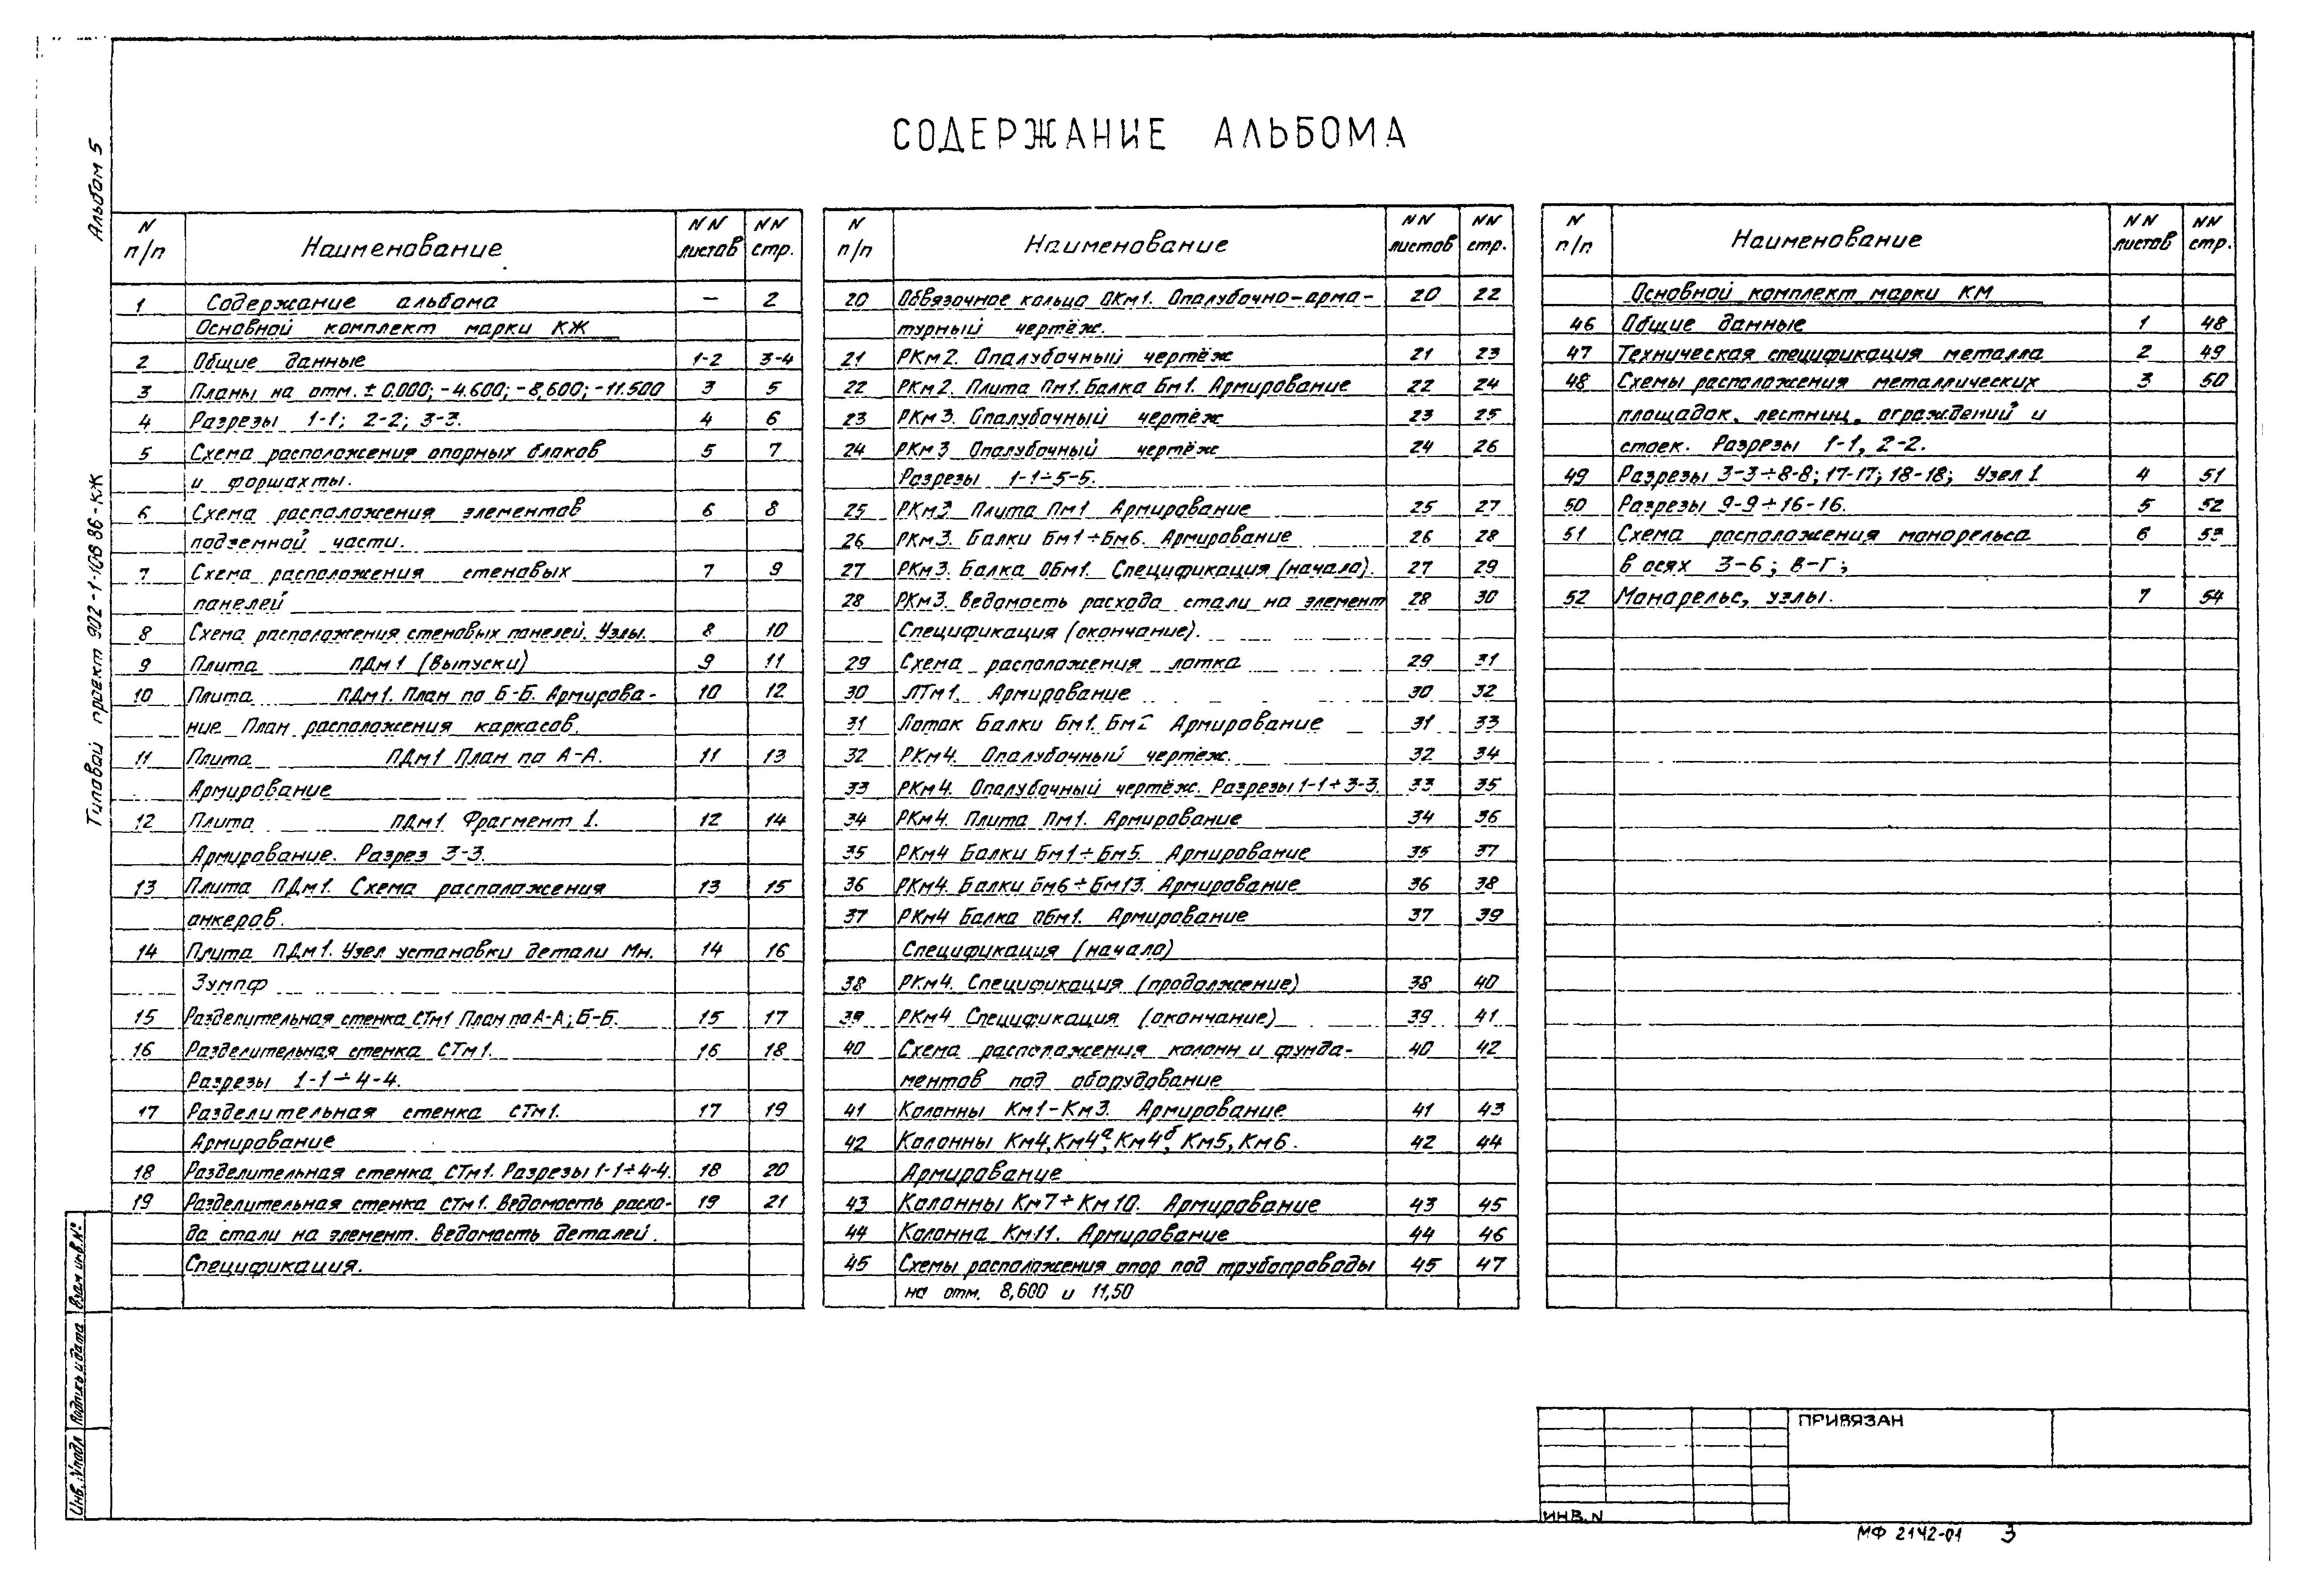 СОДЕРЖАНИЕ АЛЬБОМА
Альбом 5
Типовой проект 902-1-108.86-КЖ
N п/п Наименование NN листов NN стр.
1 Содержание альбома — 2
Основной комплект марки КЖ
2 Общие данные 1-2 3-4
3 Планы на отм. ±0.000; -4.600; -8,600; -11.500 3 5
4 Разрезы 1-1; 2-2; 3-3. 4 6
5 Схема расположения опорных блоков 5 7
и форшахты.
6 Схема расположения элементов 6 8
подземной части.
7 Схема расположения стеновых 7 9
панелей
8 Схема расположения стеновых панелей. Узлы. 8 10
9 Плита ПДм1 (выпуски) 9 11
10 Плита ПДм1. План по Б-Б. Армирова- 10 12
ние План расположения каркасов.
11 Плита ПДм1 План по А-А. 11 13
Армирование
12 Плита ПДм1 Фрагмент 1. 12 14
Армирование. Разрез 3-3.
13 Плита ПДм1. Схема расположения 13 15
анкеров.
14 Плита ПДм1. Узел установки детали Мн. 14 16
Зумпф
15 Разделительная стенка СТм1 План по А-А; Б-Б. 15 17
16 Разделительная стенка СТм1. 16 18
Разрезы 1-1÷4-4.
17 Разделительная стенка СТм1. 17 19
Армирование
18 Разделительная стенка СТм1. Разрезы 1-1÷4-4. 18 20
19 Разделительная стенка СТм1. Ведомость расхо- 19 21
да стали на элемент. Ведомость деталей.
Спецификация.
N п/п Наименование NN листов NN стр.
20 Обвязочное кольцо ОКм1. Опалубочно-арма- 20 22
турный чертёж.
21 РКм2. Опалубочный чертёж 21 23
22 РКм2. Плита Пм1. Балка Бм1. Армирование 22 24
23 РКм3. Опалубочный чертёж 23 25
24 РКм3 Опалубочный чертёж 24 26
Разрезы 1-1÷5-5.
25 РКм3 Плита Пм1 Армирование 25 27
26 РКм3. Балки Бм1÷Бм6. Армирование 26 28
27 РКм3. Балка ОБм1. Спецификация (начало). 27 29
28 РКм3. Ведомость расхода стали на элемент 28 30
Спецификация (окончание).
29 Схема расположения лотка 29 31
30 ЛТм1. Армирование 30 32
31 Лоток Балки Бм1. Бм2 Армирование 31 33
32 РКм4. Опалубочный чертёж. 32 34
33 РКм4. Опалубочный чертёж. Разрезы 1-1÷3-3. 33 35
34 РКм4. Плита Пм1. Армирование 34 36
35 РКм4 Балки Бм1÷Бм5. Армирование 35 37
36 РКм4. Балки Бм6÷Бм13. Армирование 36 38
37 РКм4 Балка ОБм1. Армирование 37 39
Спецификация (начало)
38 РКм4. Спецификация (продолжение) 38 40
39 РКм4 Спецификация (окончание) 39 41
40 Схема расположения колонн и фунда- 40 42
ментов под оборудование
41 Колонны Км1-Км3. Армирование 41 43
42 Колонны Км4, Км4а, Км4б, Км5, Км6. 42 44
Армирование
43 Колонны Км7÷Км10. Армирование 43 45
44 Колонна Км11. Армирование 44 46
45 Схемы расположения опор под трубопроводы 45 47
на отм. 8,600 и 11,50
N п/п Наименование NN листов NN стр.
Основной комплект марки КМ
46 Общие данные 1 48
47 Техническая спецификация металла 2 49
48 Схемы расположения металлических 3 50
площадок, лестниц, ограждений и
стоек. Разрезы 1-1, 2-2.
49 Разрезы 3-3÷8-8; 17-17; 18-18; Узел 1 4 51
50 Разрезы 9-9÷16-16. 5 52
51 Схема расположения монорельса 6 53
в осях 3-6; В-Г;
52 Монорельс, узлы. 7 54
Инв.№подл Подпись и дата Взам инв.№
ПРИВЯЗАН
ИНВ. N
МФ 2142-01 3